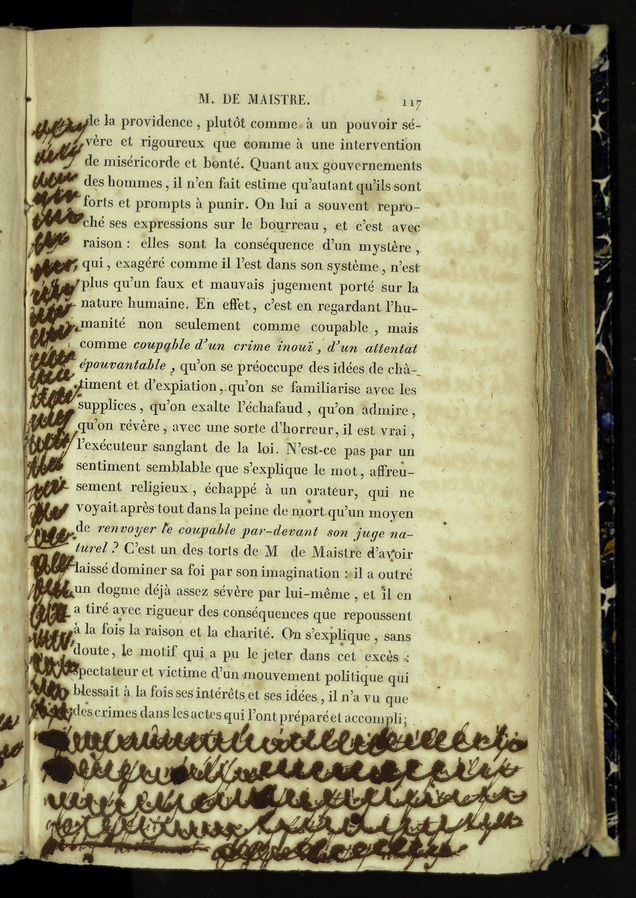 M. DE MAISTRE. 117
de la providence, plutôt comme à un pouvoir sé-
vère et rigoureux que comme à une intervention
de miséricorde et bonté. Quant aux gouvernements
des hommes, il n'en fait estime qu'autant qu'ils sont
forts et prompts à punir. On lui a souvent repro-
ché ses expressions sur le bourreau, et c'est avec
raison : elles sont la conséquence d'un mystère,
qui, exagéré comme il l'est dans son système, n'est
plus qu'un faux et mauvais jugement porté sur la
nature humaine. En effet, c'est en regardant l'hu-
manité non seulement comme coupable, mais
comme coupable d'un crime inouï, d'un attentat
épouvantable, qu'on se préoccupe des idées de châ-
timent et d'expiation, qu'on se familiarise avec les
supplices, qu'on exalte l'échafaud, qu'on admire,
qu'on révère, avec une sorte d'horreur, il est vrai,
l'exécuteur sanglant de la loi. N'est-ce pas par un
sentiment semblable que s'explique le mot, affreu-
sement religieux, échappé à un orateur, qui ne
voyait après tout dans la peine de mort qu'un moyen
de renvoyer le coupable par-devant son juge na-
turel ? C'est un des torts de M de Maistre d'avoir
laissé dominer sa foi par son imagination : il a outré
un dogme déjà assez sévère par lui-même, et il en
a tiré avec rigueur des conséquences que repoussent
à la fois la raison et la charité. On s'explique, sans
doute, le motif qui a pu le jeter dans cet excès :
spectateur et victime d'un mouvement politique qui
blessait à la fois ses intérêts et ses idées, il n'a vu que
des crimes dans les actes qui l'ont préparé et accompli;